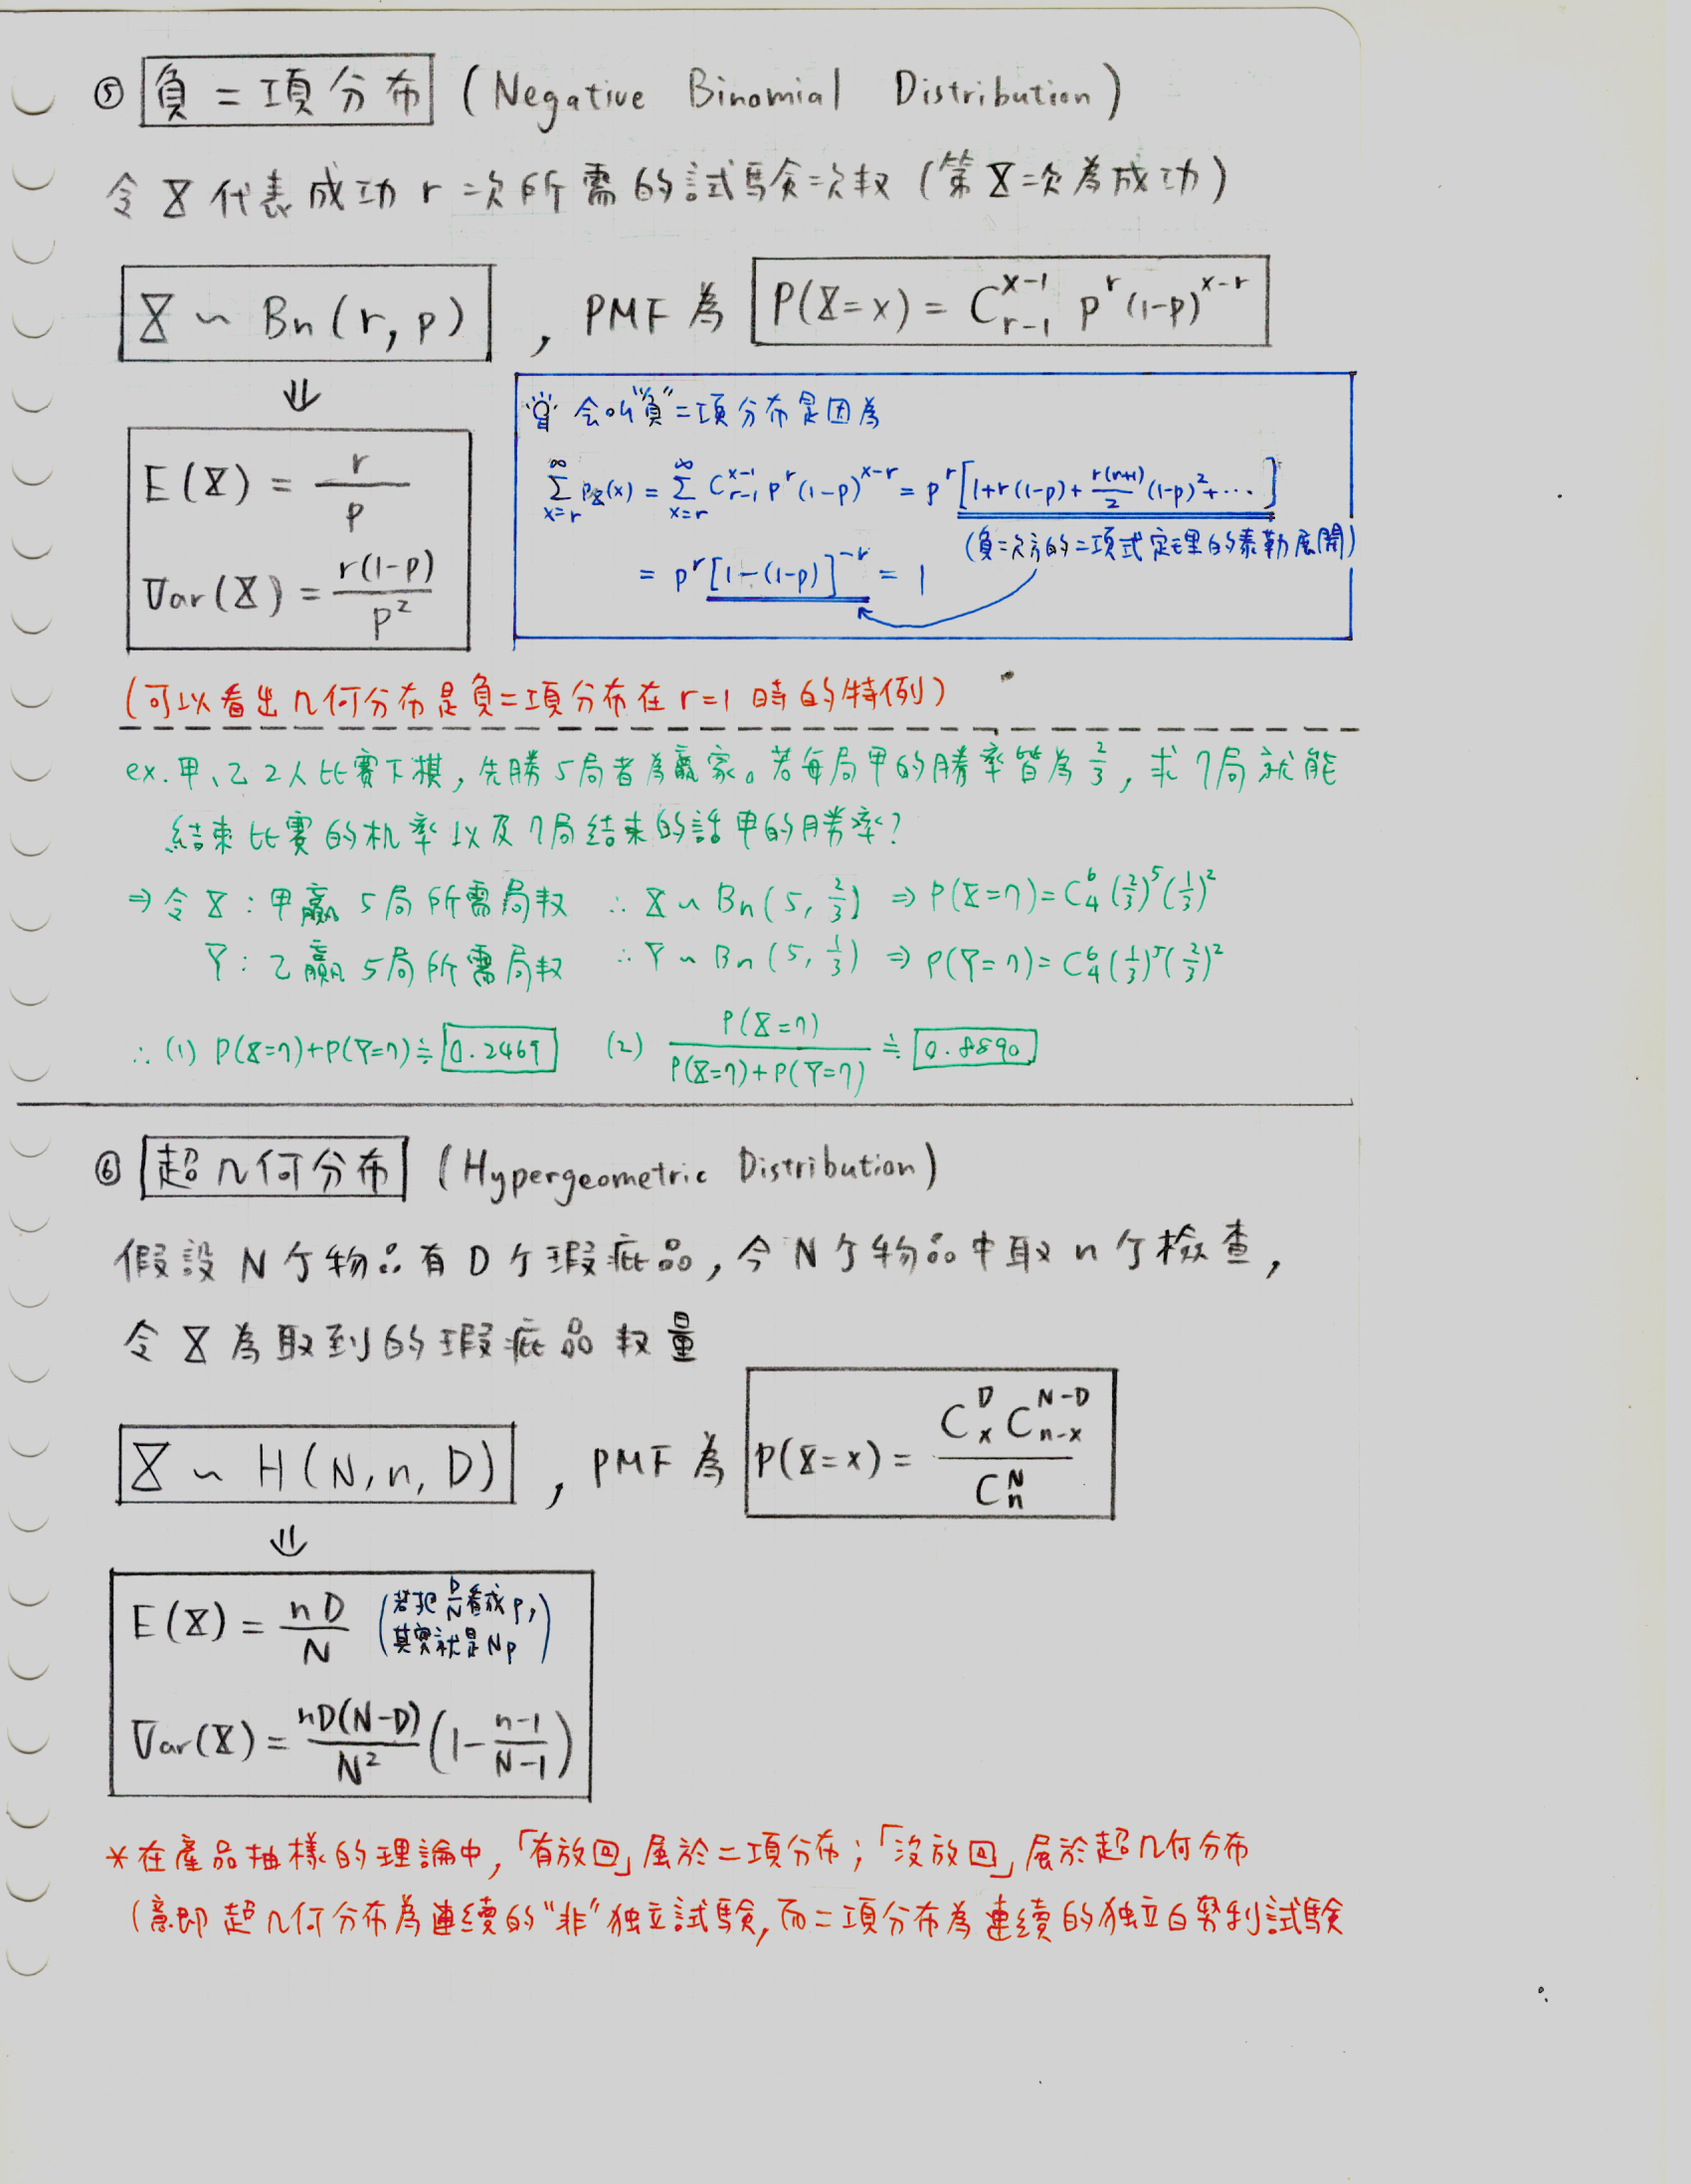 ⑤ 負二項分布 (Negative Binomial Distribution)
令 X 代表成功 r 次所需的試驗次数 (第X次為成功)
X ~ Bn(r, p) , PMF 為 P(X=x) = C^{x-1}_{r-1} p^r (1-p)^{x-r}
⇓
E(X) = r/p
Var(X) = r(1-p)/p²
會叫"負"二項分布是因為
∑_{x=r}^{∞} P_X(x) = ∑_{x=r}^{∞} C^{x-1}_{r-1} p^r (1-p)^{x-r} = p^r [1+r(1-p)+ r(r+1)/2 (1-p)²+⋯]
(負次方的二項式定理的泰勒展開)
= p^r [1-(1-p)]^{-r} = 1
(可以看出几何分布是負二項分布在 r=1 時的特例)
ex. 甲、乙 2人比賽下棋, 先勝 5局者為贏家。若每局甲的勝率皆為 2/3, 求 7局就能
結束比賽的机率以及 7局結束的話甲的勝率?
⇒ 令 X : 甲贏 5局所需局数 ∴ X ~ Bn(5, 2/3) ⇒ P(X=7) = C^6_4 (2/3)^5 (1/3)^2
Y : 乙贏 5局所需局数 ∴ Y ~ Bn(5, 1/3) ⇒ P(Y=7) = C^6_4 (1/3)^5 (2/3)^2
∴ (1) P(X=7)+P(Y=7) ≒ 0.2469 (2) P(X=7)/(P(X=7)+P(Y=7)) ≒ 0.8890
⑥ 超几何分布 (Hypergeometric Distribution)
假設 N 个物品有 D 个瑕疵品, 今 N 个物品中取 n 个檢查,
令 X 為取到的瑕疵品数量
X ~ H(N, n, D) , PMF 為 P(X=x) = C^D_x C^{N-D}_{n-x} / C^N_n
⇓
E(X) = nD/N (若把 D/N 看成 p, 其實就是 Np)
Var(X) = nD(N-D)/N² (1 - (n-1)/(N-1))
* 在產品抽樣的理論中,「有放回」屬於二項分布;「沒放回」屬於超几何分布
(意即超几何分布為連續的"非"独立試驗, 而二項分布為連續的独立白努利試驗